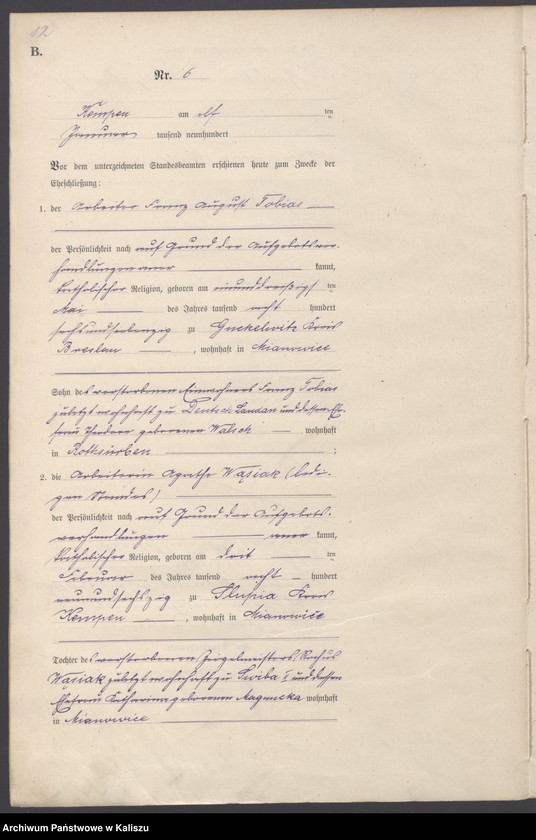 12
B.
Nr. 6
Kempen am elf ten
Januar tausend neunhundert
Vor dem unterzeichneten Standesbeamten erschienen heute zum Zwecke der
Eheschließung:
1. der Arbeiter Franz August Tobias
der Persönlichkeit nach auf Grund der Aufgebotsver-
handlungen aner kannt,
katholischer Religion, geboren am einunddreißigs ten
Mai des Jahres tausend acht hundert
sechsundsiebenzig zu Guckelwitz Kreis
Breslau, wohnhaft in Mianowice
Sohn des verstorbenen Einwohners Franz Tobias
zuletzt wohnhaft zu Deutsch und dessen Ehe-
frau Theodora geborenen Walsch wohnhaft
in Rothsürben;
2. die Arbeiterin Agathe Wąsiak (ledi-
gen Standes)
der Persönlichkeit nach auf Grund der Aufgebots-
verhandlungen aner kannt,
katholischer Religion, geboren am drit ten
Februar des Jahres tausend acht hundert
neunundsechszig zu Slupia Kreis
Kempen, wohnhaft in Mianowice
Tochter des verstorbenen Ziegelmeisters Rochus
Wąsiak zuletzt wohnhaft zu Swiba I und dessen
Ehefrau Katharina geborenen wohnhaft
in Mianowice
Archiwum Państwowe w Kaliszu